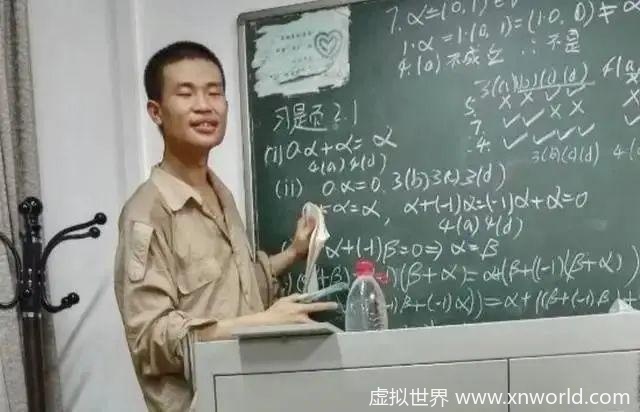 7. α=(0,1)=0
1·α=1·(0,1)=(1·0,0)≠α
4(a)不成立 ∴不是
3(a)(b)(c)(d) 4(a)
5. X X X X
7. ✓ ✓ X X
✓ ✓ ✓ ✓
3(b)(c)(d) 4
习题2.1
(i) 0α+α=α
4(a)4(d)
(ii) 0α=0. 3(b)3(c)3(d)
=α=α, α+(-1)α=(-1)α+α=0
4(a)4(d)
α+(-1)β=0⇒α=β
)(β+α)=α+(β+((-1)(β+α)
β+(-1)α))=α+((β+(-1)β
虚拟世界 www.xnworld.com